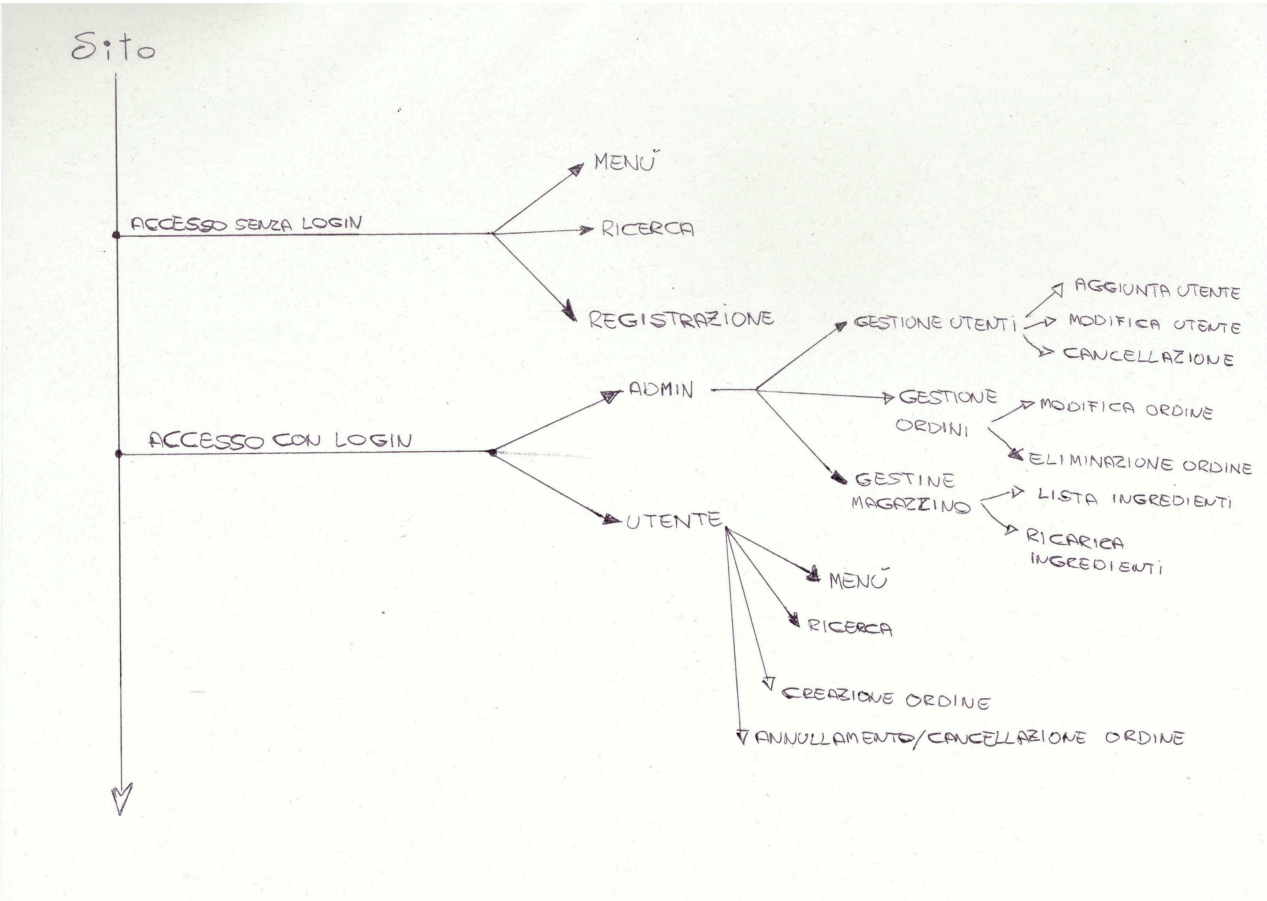 Sito
MENŬ
ACCESSO SENZA LOGIN
RICERCA
REGISTRAZIONE
ADMIN
GESTIONE UTENTI
AGGIUNTA UTENTE
MODIFICA UTENTE
CANCELLAZIONE
GESTIONE
ORDINI
MODIFICA ORDINE
ELIMINAZIONE ORDINE
ACCESSO CON LOGIN
GESTINE
MAGAZZINO
LISTA INGREDIENTI
RICARICA
INGREDIENTI
UTENTE
MENŬ
RICERCA
CREAZIONE ORDINE
ANNULLAMENTO/CANCELLAZIONE ORDINE